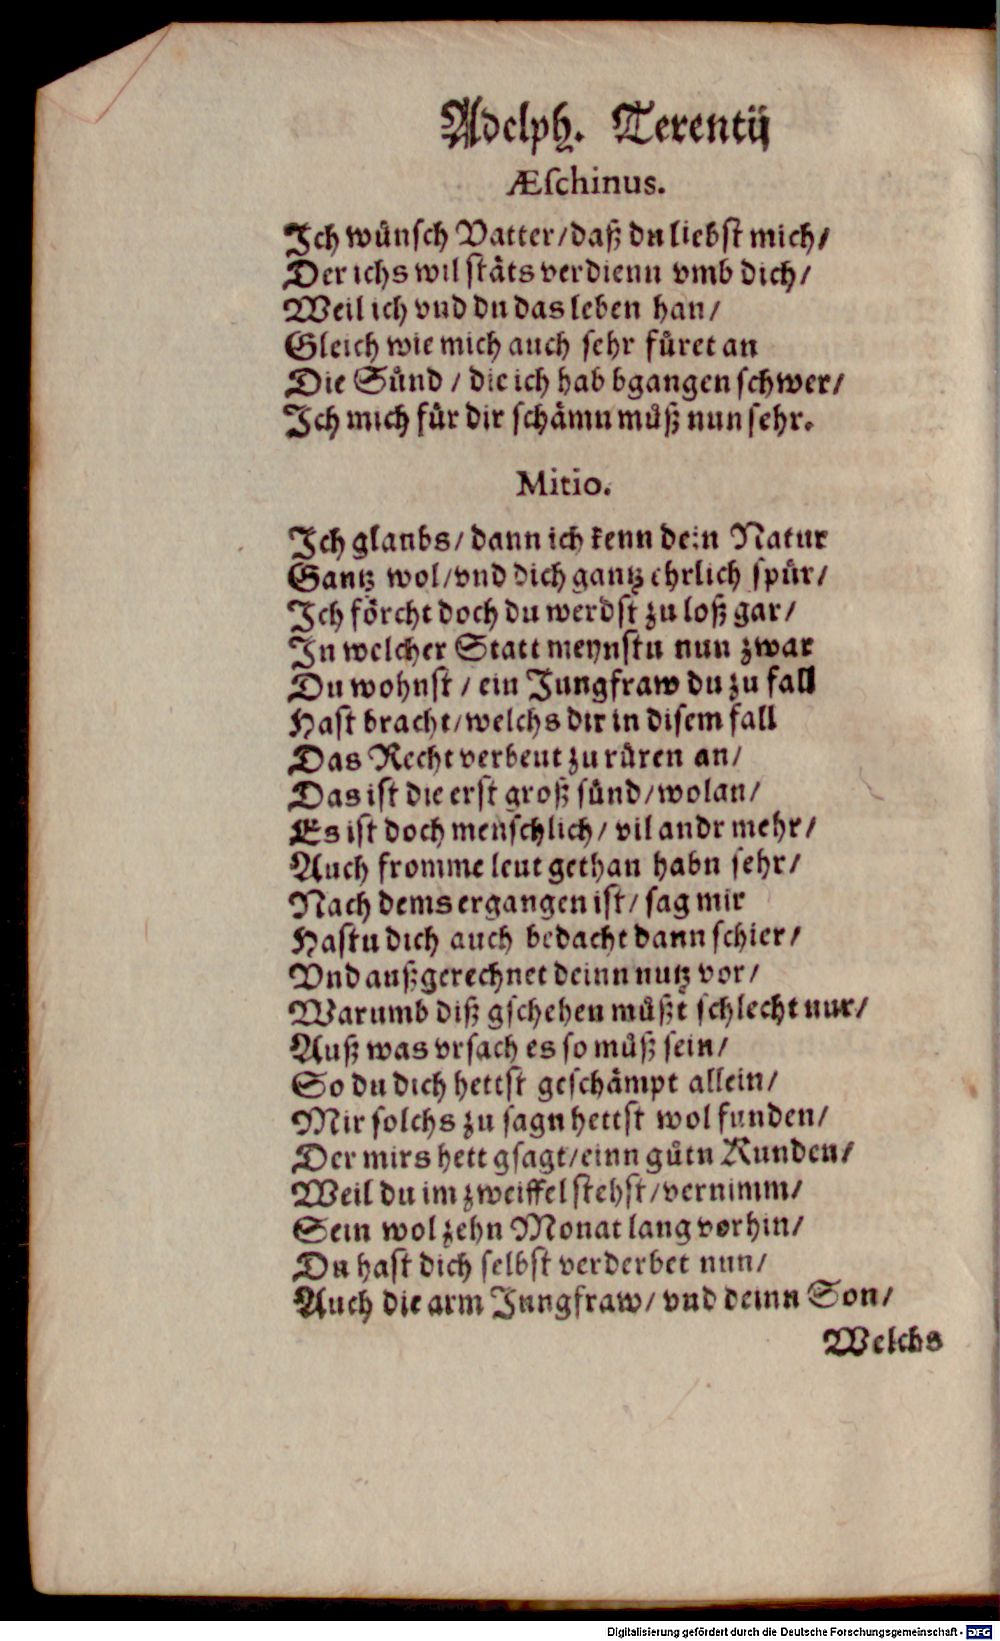 Adelph. Terentij
Æſchinus.
Ich wünſch Vatter/daß du liebſt mich/
Der ichs wil ſtäts verdienn vmb dich/
Weil ich vnd du das leben han/
Gleich wie mich auch ſehr füret an
Die Sünd / die ich hab bgangen ſchwer/
Ich mich für dir ſchämn müß nun ſehr.
Mitio.
Ich glaubs/ dann ich kenn dein Natur
Gantz wol/vnd dich gantz ehrlich ſpür/
Ich förcht doch du werdſt zu loß gar/
In welcher Statt meynſtu nun zwar
Du wohnſt / ein Jungfraw du zu fall
Haſt bracht/welchs dir in diſem fall
Das Recht verbeut zu rüren an/
Das iſt die erſt groß ſünd/wolan/
Es iſt doch menſchlich/ vil andr mehr/
Auch fromme leut gethan habn ſehr/
Nach dems ergangen iſt/ ſag mir
Haſtu dich auch bedacht dann ſchier/
Vnd außgerechnet deinn nutz vor/
Warumb diß gſchehen müßt ſchlecht nur/
Auß was vrſach es ſo müß ſein/
So du dich hettſt geſchämpt allein/
Mir ſolchs zu ſagn hettſt wol funden/
Der mirs hett gſagt/einn gütn Kunden/
Weil du im zweiffel ſtehſt/vernimm/
Sein wol zehn Monat lang vorhin/
Du haſt dich ſelbſt verderbet nun/
Auch die arm Jungfraw/ vnd deinn Son/
Welchs
Digitalisierung gefördert durch die Deutsche Forschungsgemeinschaft - DFG